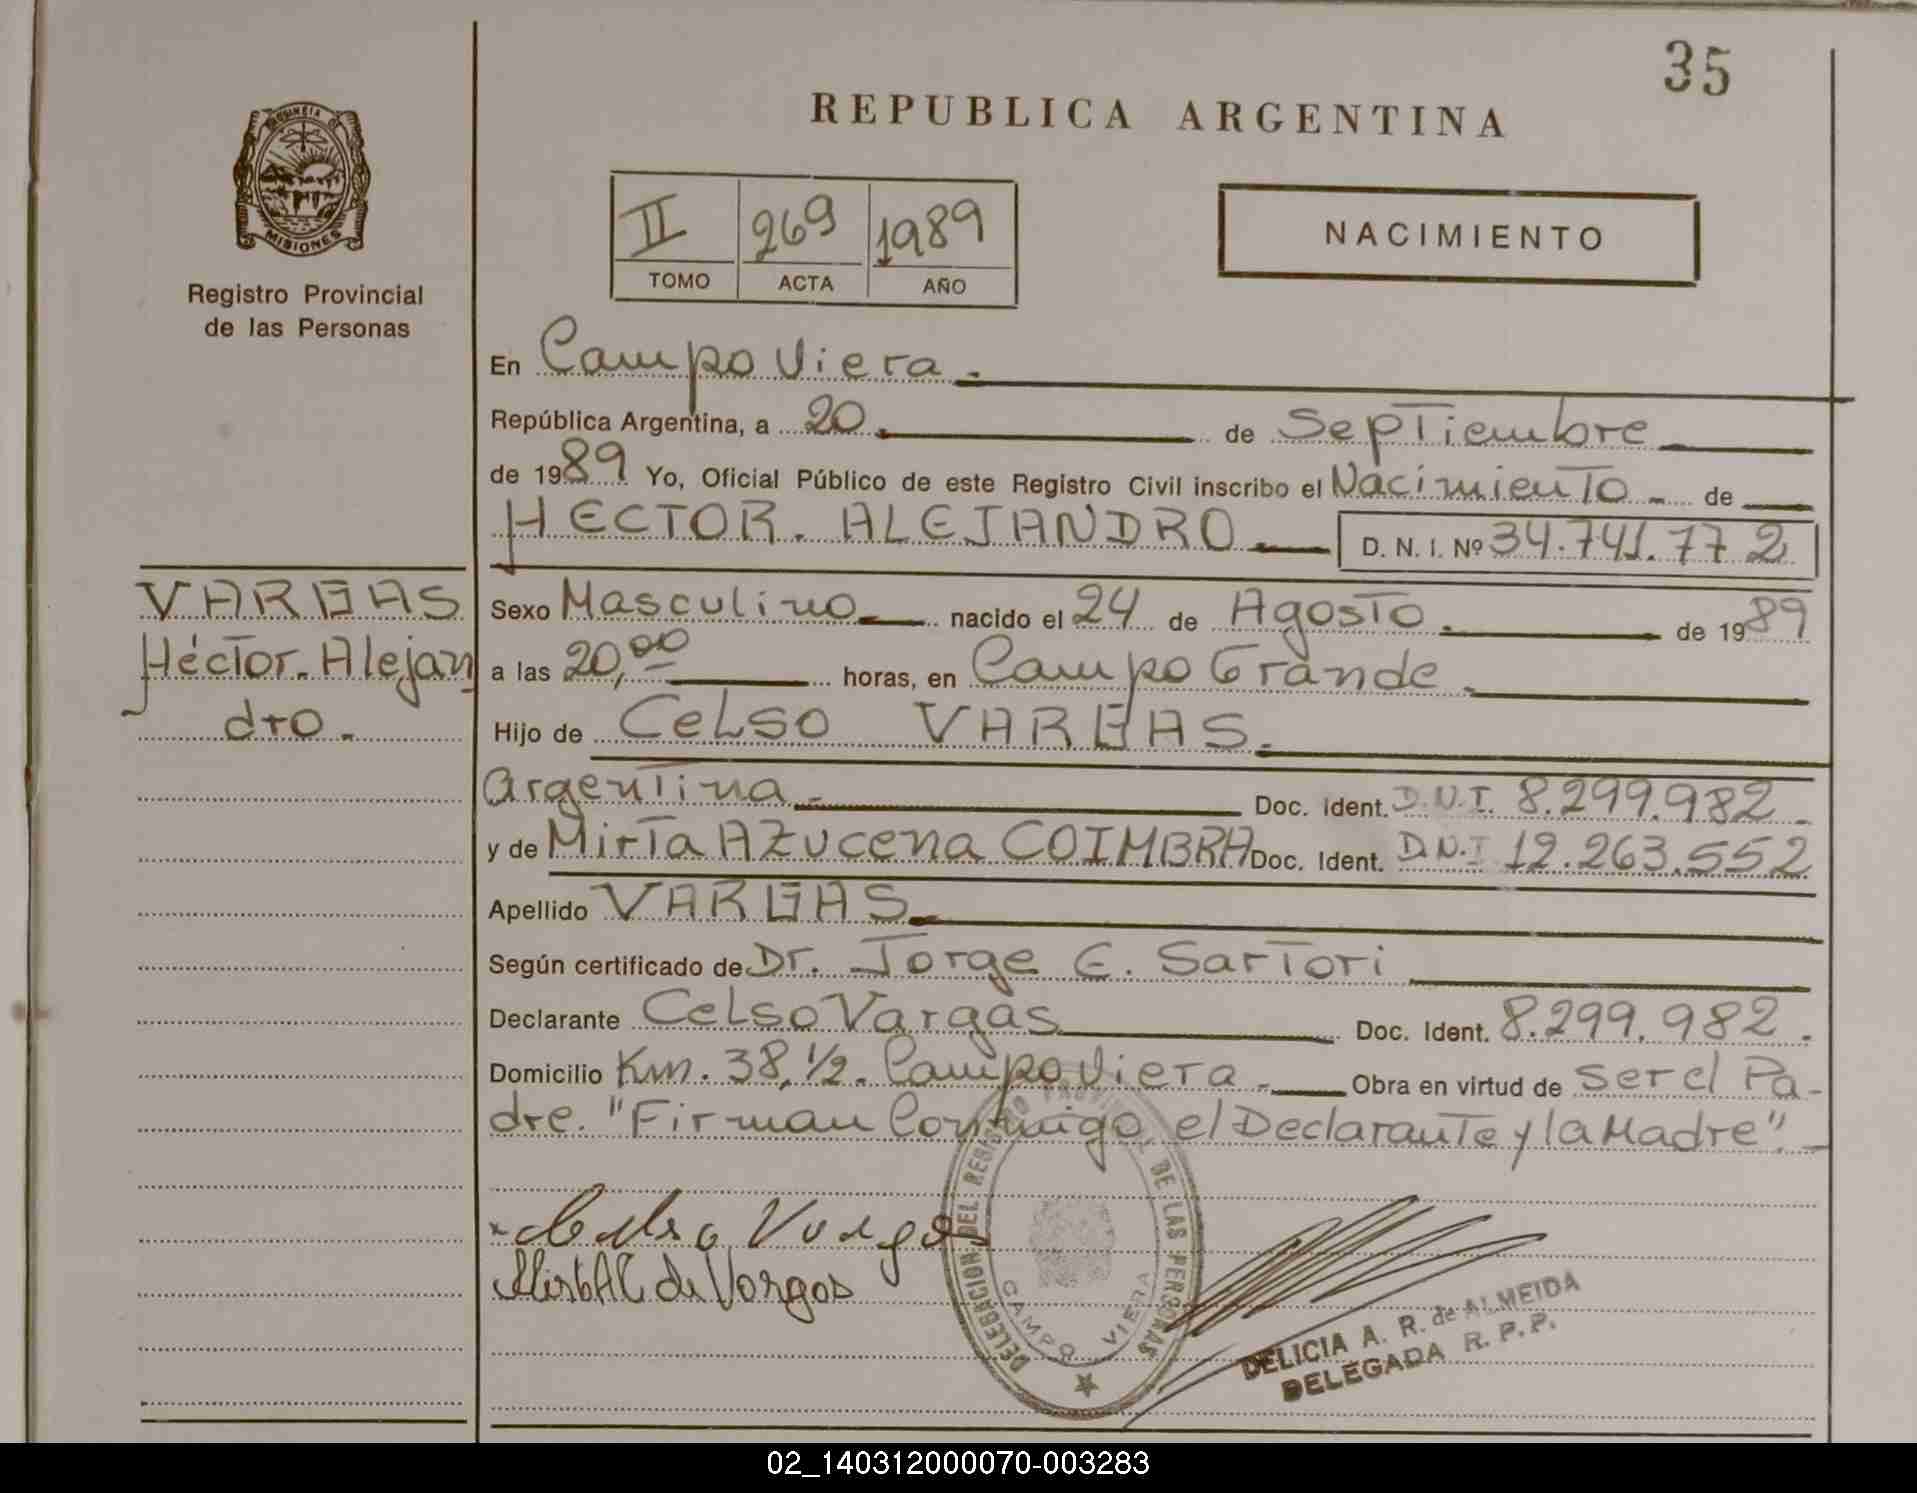 35
REPUBLICA ARGENTINA
PROVINCIA DE
MISIONES
Registro Provincial
de las Personas
II 269 1989
TOMO ACTA AÑO
NACIMIENTO
En Campo Viera.
República Argentina, a 20 de Septiembre
de 1989 Yo, Oficial Público de este Registro Civil inscribo el Nacimiento - de
HECTOR. ALEJANDRO D. N. I. Nº 34.741.772
VARGAS
Héctor. Alejan
dro.
Sexo Masculino nacido el 24 de Agosto. de 1989
a las 20,00 horas, en Campo Grande.
Hijo de Celso VARGAS.
Argentina - Doc. Ident. D.N.I. 8.299.982.
y de Mirta AZucena COIMBRA Doc. Ident. D.N.I 12.263.552
Apellido VARGAS
Según certificado de Dr. Jorge E. Sartori
Declarante Celso Vargas Doc. Ident. 8.299.982.
Domicilio Km. 38,1/2. Campo Viera. Obra en virtud de ser el Pa-
dre. "Firman Conmigo, el Declarante y la Madre".
Celso Vargas
Mirta C de Vargas
DELEGACION DEL REGISTRO PROVINCIAL DE LAS PERSONAS
CAMPO VIERA
DELICIA A. R. de ALMEIDA
DELEGADA R. P. P.
02_140312000070-003283